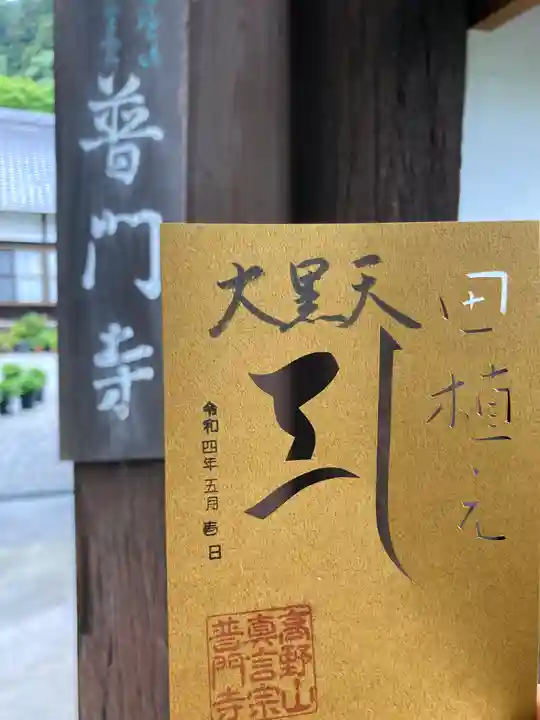 普門寺
田植え
大黒天
令和四年五月吉日
高野山
真言宗
普門寺